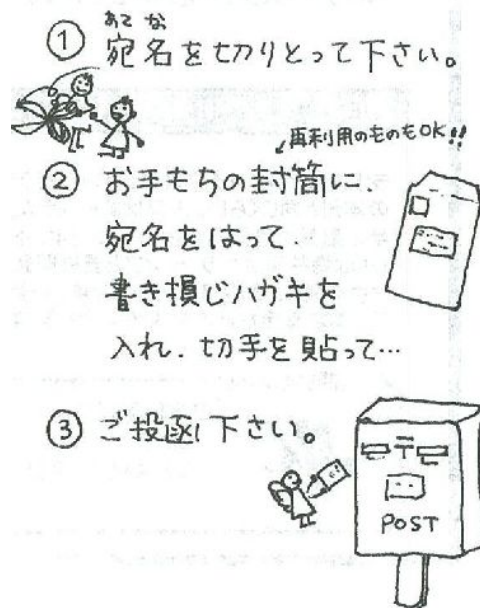 あて な
① 宛名を切りとって下さい。
再利用のものもOK!!
② お手もちの封筒に、
宛名をはって、
書き損じハガキを
入れ、切手を貼って…
③ ご投函下さい。
〒
POST